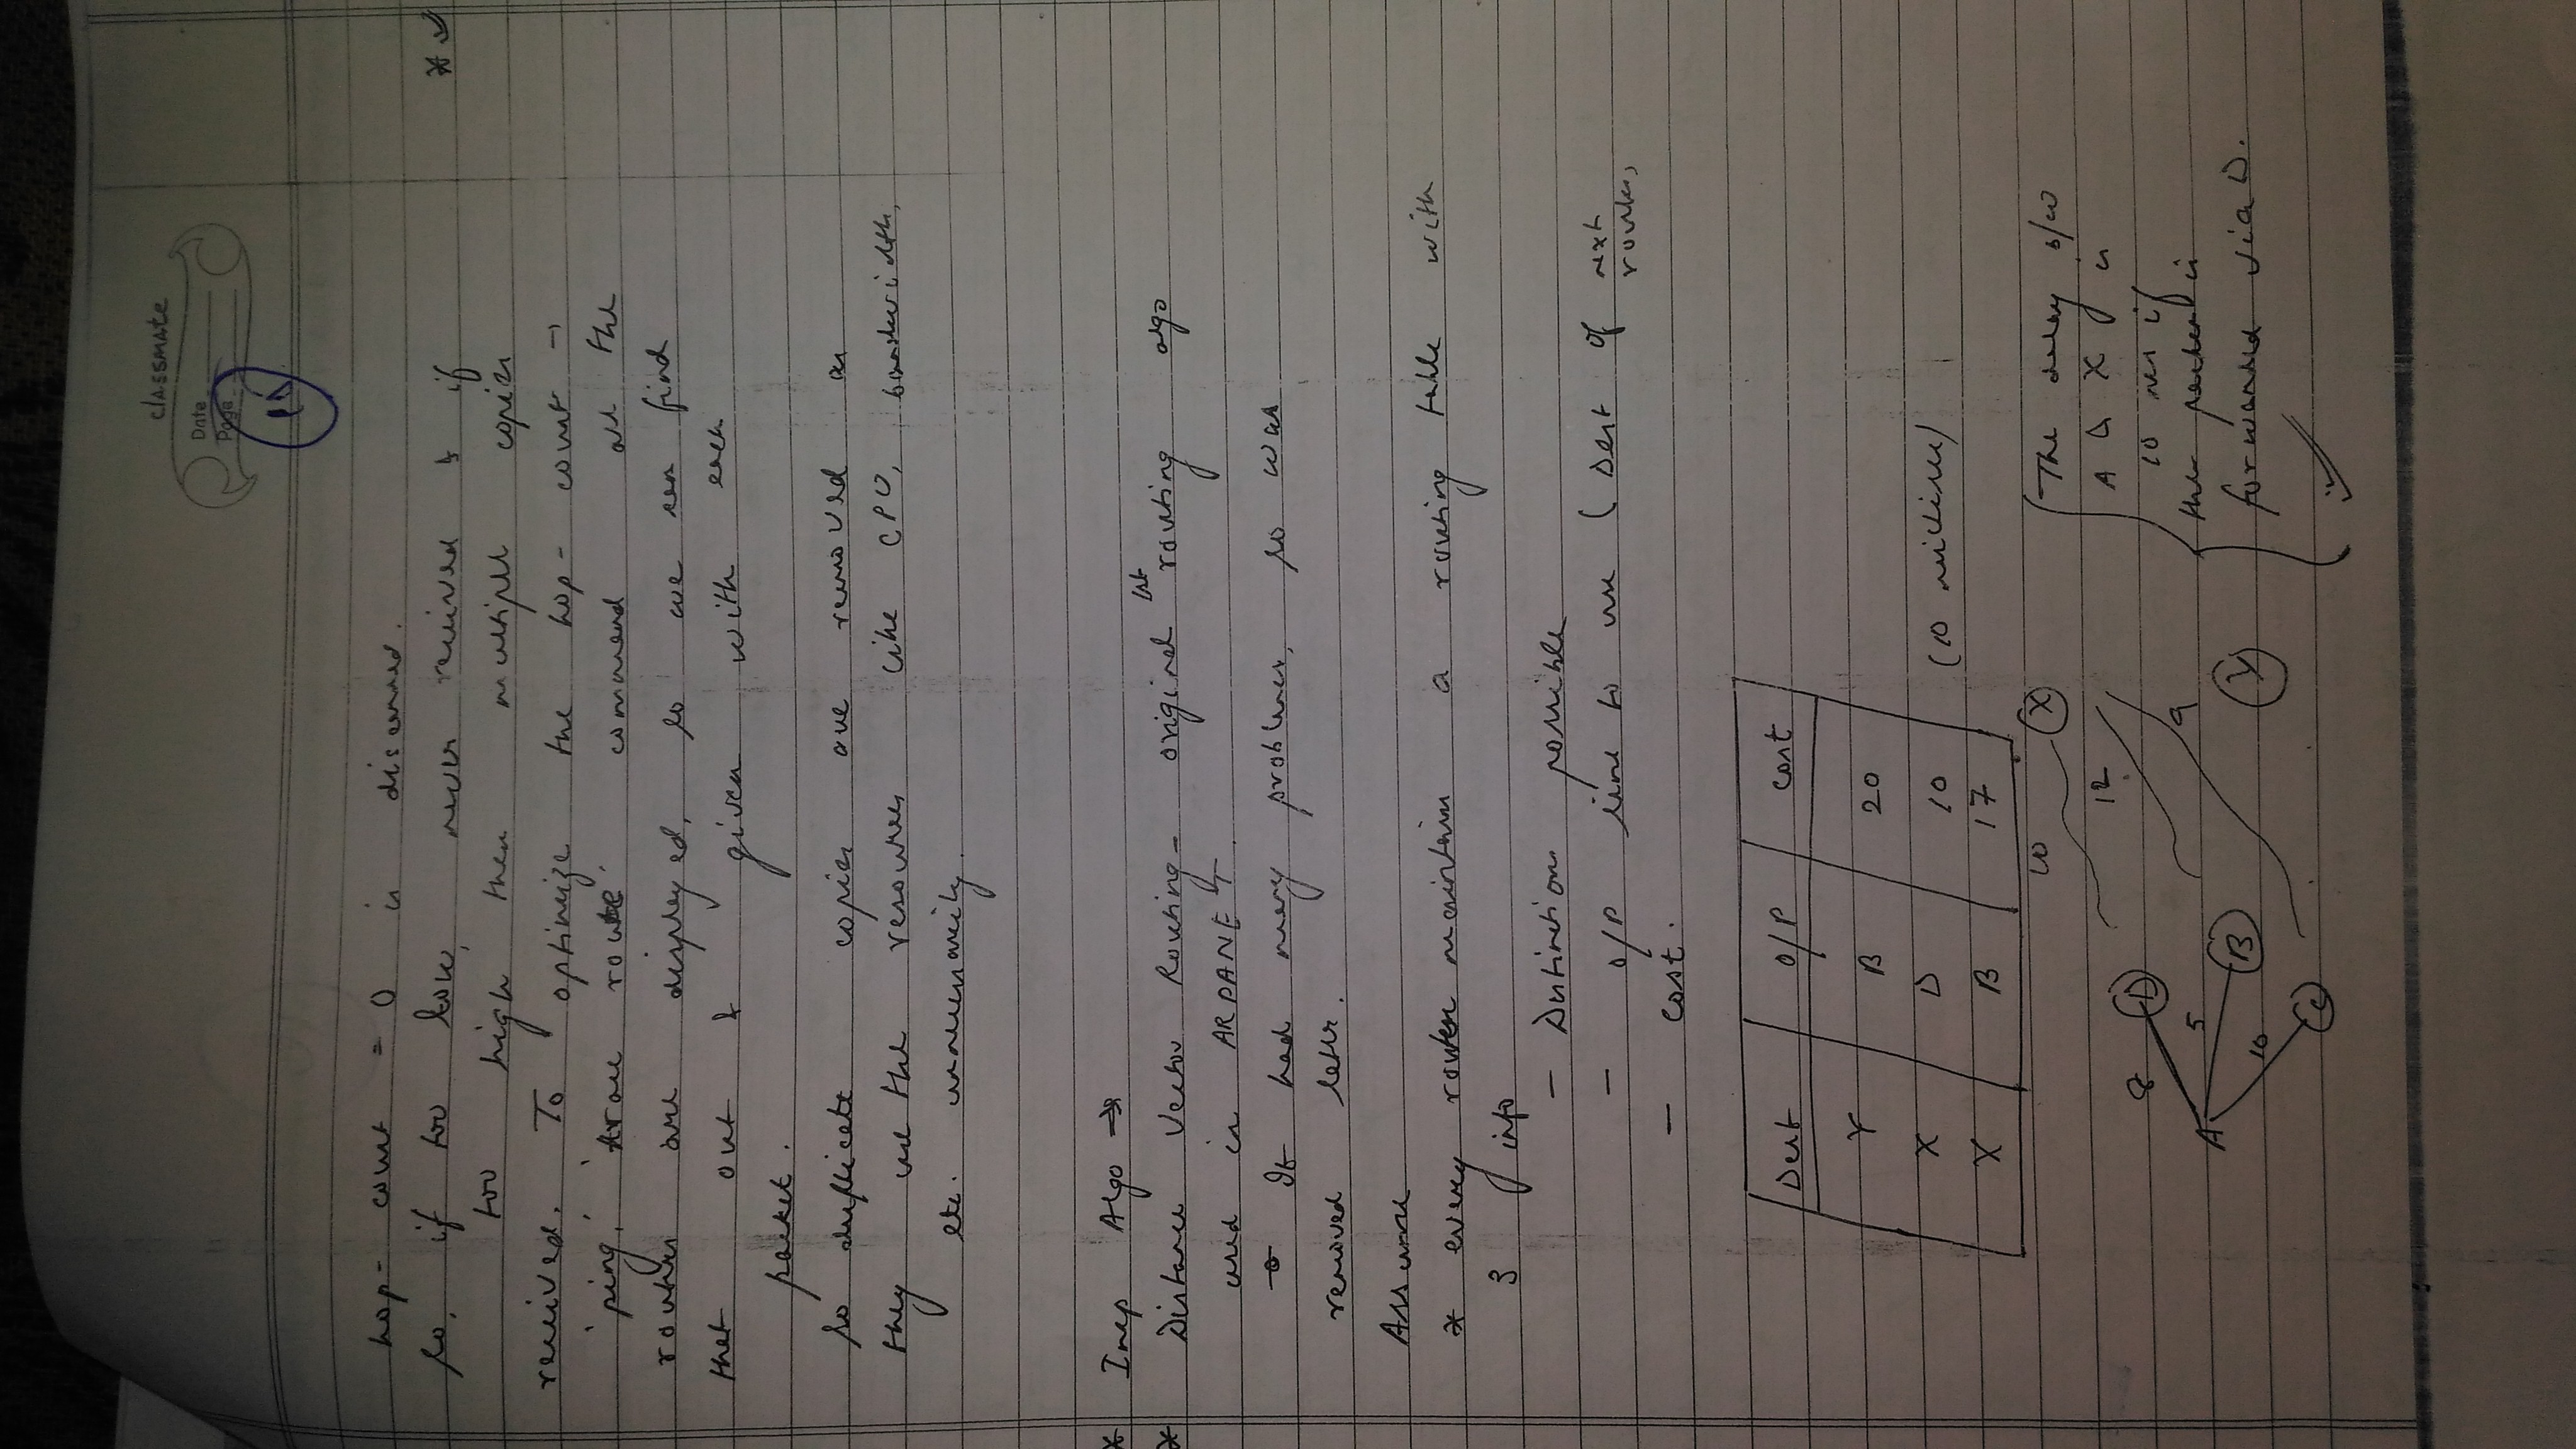 classmate
Date
Page
hop - count = 0 is discarded.
so, if too low, never received & if
too high then multiple copies
received. To optimize the hop - count →
'ping', 'trace route' command all the
routers are displayed, so we can find
that out & given with each
packet.
so duplicate copies are removed as
they use the resources like CPU, bandwidth,
etc. unnecessarily.
* Imp Algo →
* Distance Vector Routing - original 1st routing algo
used in ARPANET
→ It had many problems, so was
removed later.
Assume
* every router maintain a routing table with
3 info
- Destination possible
- O/P line to use (Dest of next router,
- Cost.
Dest O/P Cost
Y B 20
X D 10 (10 millisec)
X B 17
10 X
8 D 12
A 5 B 9
10 C Y
(The delay b/w
A & X is
10 ms if
the packet is
forwarded via D.